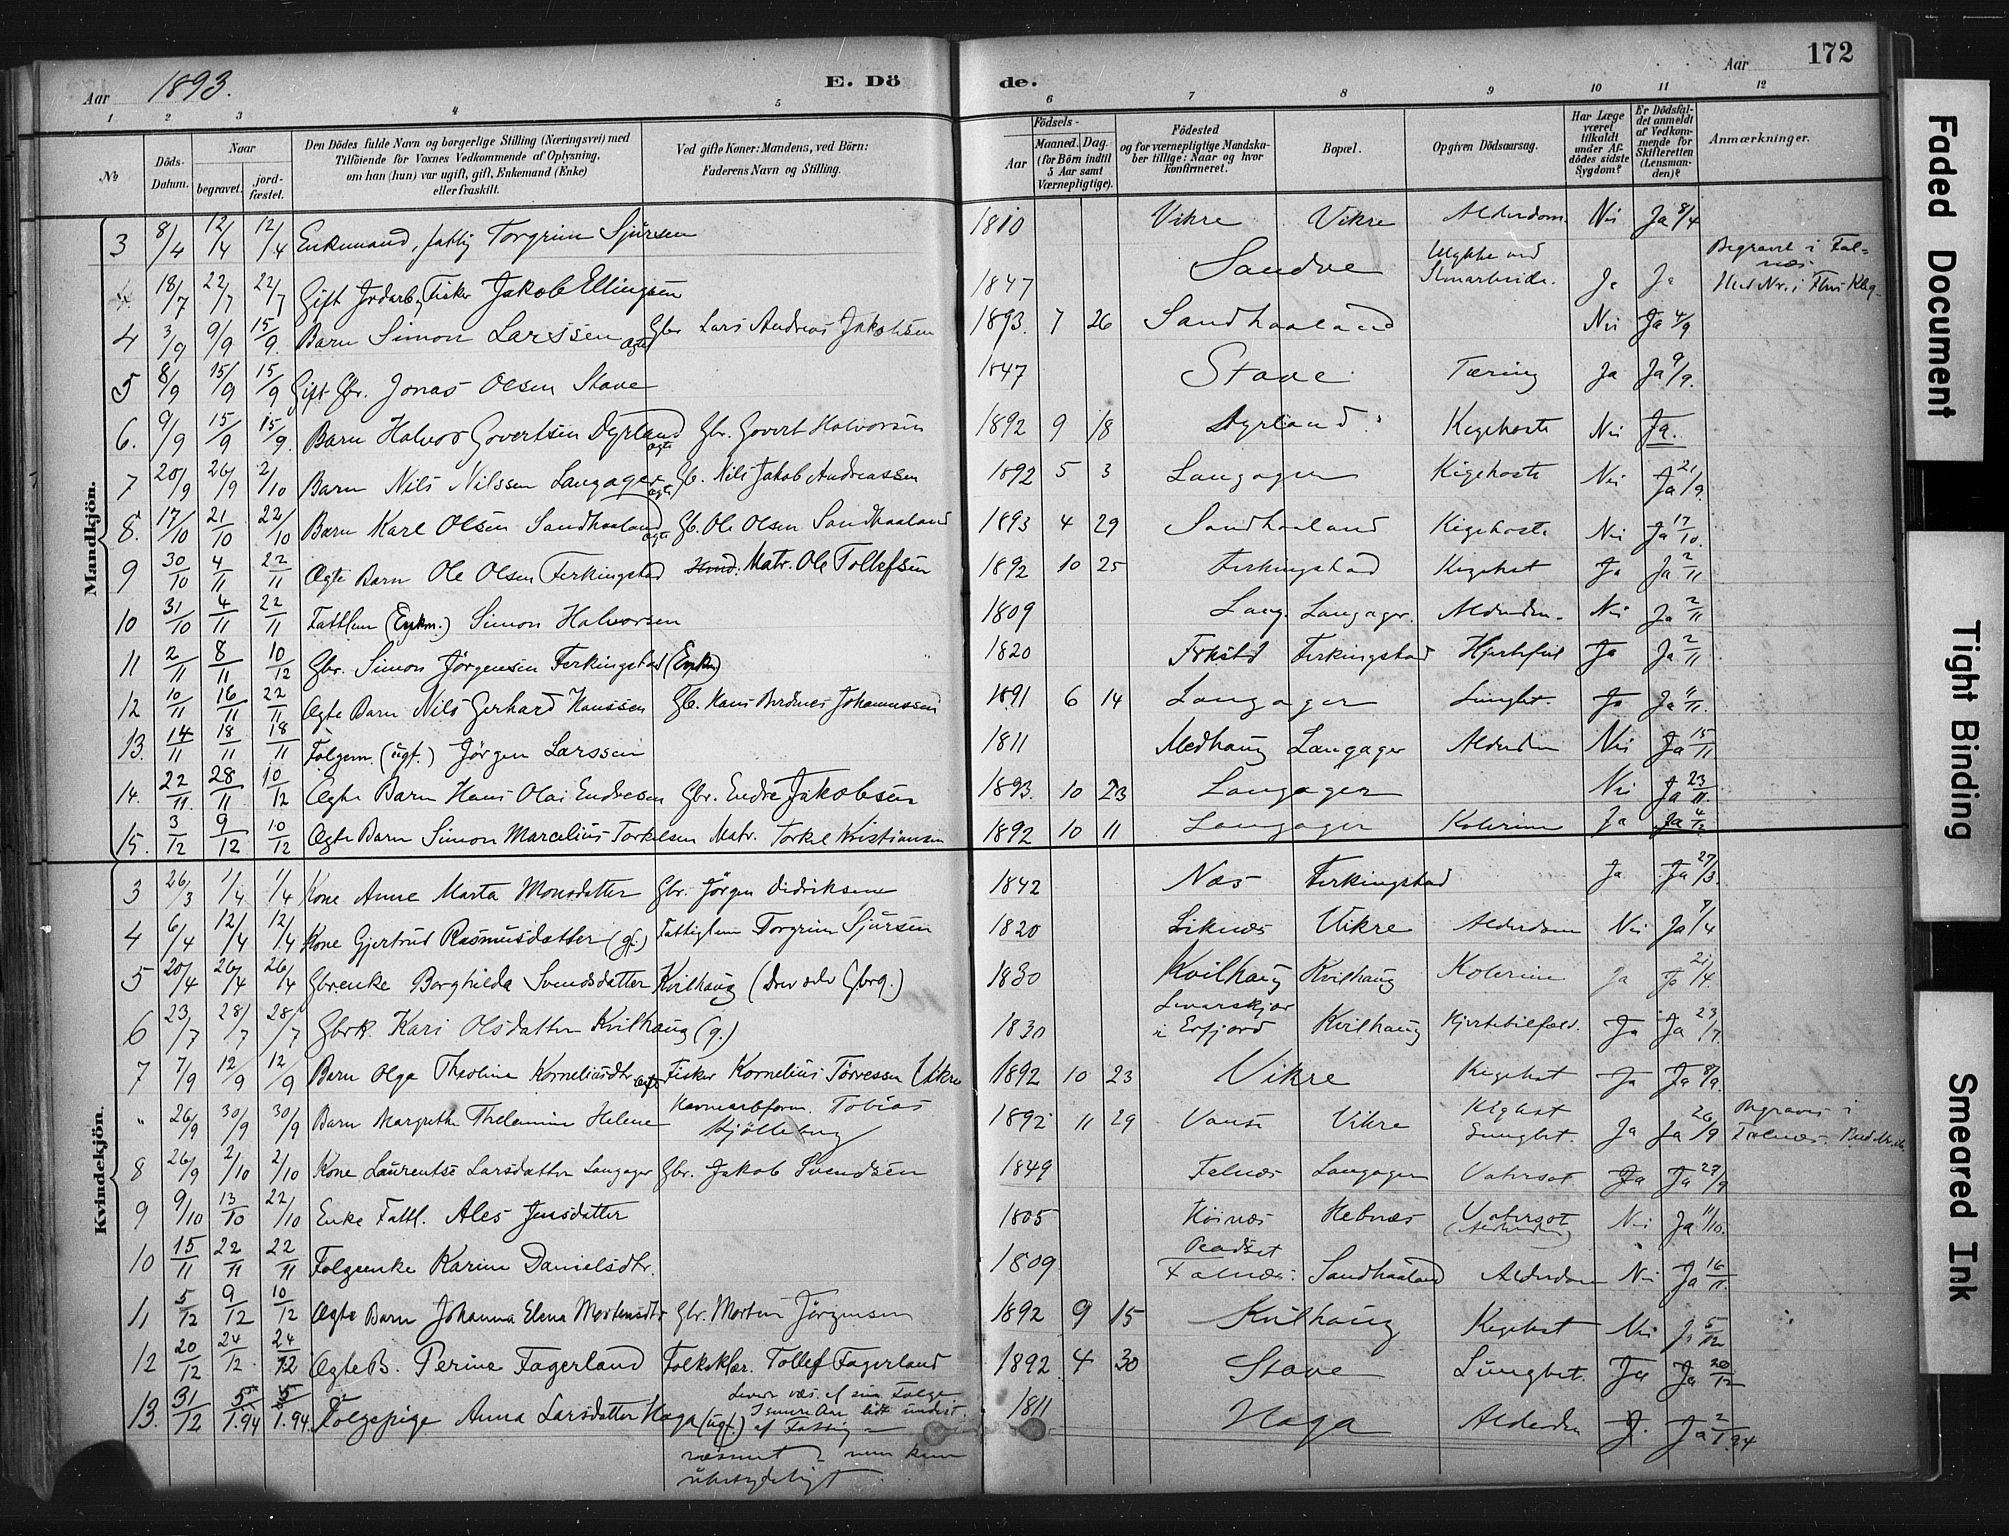 Aar 1893. E. Döde. Aar 172
1 2 3 4 5 6 7 8 9 10 11 12
№ Döds-Datum. Naar begravet. jord-fæstet. Den Dödes fulde Navn og borgerlige Stilling (Næringsvei) med Tilföiende for Voxnes Vedkommende af Oplysning, om han (hun) var ugift, gift, Enkemand (Enke) eller fraskilt. Ved gifte Koner: Mandens, ved Börn: Faderens Navn og Stilling. Födsels- Aar Maaned. Dag. (for Börn indtil 5 Aar samt Værnepligtige). Födested og for værnepligtige Mandskaber tillige: Naar og hvor konfirmeret. Bopæl. Opgiven Dödsaarsag. Har Læge været tilkaldt under Afdödes sidste Sygdom? Er Dödsfaldet anmeldt af Vedkommende for Skifteretten (Lensmanden)? Anmærkninger.
Mandkjön.
3 8/4 12/4 12/4 Enkemand, fattig Torgrim Sjursen 1810 Vikre Vikre Alderdom Nei Ja 8/4
4 18/7 22/7 22/7 Gift Jordarb., Fisker Jakob Ellingsen 1847 Sandve Ulykke ved Stenarbeide. Ja Ja Begravet i Falnæs
4 3/9 9/9 15/9 Barn Simon Larssen ægte Gbr Lars Andreas Jakobsen 1893. 7 26 Sandhaaland Nei Ja 4/9
5 8/9 15/9 15/9 Gift Gbr. Jonas Olsen Stave 1847 Stave Tæring Ja Ja 9/9.
6. 9/9 15/9 15/9. Barn Halvor Govertsen Dyrland ægte Gbr. Govert Halvorsen 1892 9 18 Dyrland Kigehoste Nei Ja.
7 20/9 26/9 2/10 Barn Nils Nilssen Langager ægte Gb. Nils Jakob Andreassen 1892 5 3 Langager Kigehoste Nei Ja 21/9.
8. 17/10 21/10 22/10 Barn Karl Olsen Sandhaaland ægte Gb. Ole Olsen Sandhaaland 1893 4 29 Sandhaaland Kigehoste Nei Ja 17/10.
9 30/10 4/11 22/11 Ægte Barn Ole Olsen Ferkingstad Matr. Ole Tollefsen 1892 10 25 Ferkingstad Kigehst Ja Ja 2/11
10 31/10 4/11 22/11 Fattlem (Enkm.) Simon Halvorsen 1809 Lang. Langager. Alderdom. Nei Ja 2/11
11 2/11 8/11 10/12 Gbr. Simon Jörgensen Ferkingstad (Enkm) 1820 Frkstd Ferkingstad Hjertefeil Ja Ja 2/11
12 10/11 16/11 22/11 Ægte Barn Nils Gerhard Hanssen Gb. Hans Berdnes Johannessen 1891 6 14 Langager Lungbt. Ja Ja 11/11.
13. 14/11 18/11 18/11 Folgem. (ugf.) Jörgen Larssen 1811 Medhaug Langager Alderdom Nei Ja 15/11
14. 22/11 28/11 10/12 Ægte Barn Hans Olai Endresen Gbr. Endre Jakobsen 1893. 10 23 Langager Nei Ja 23/11.
15. 3/12 9/12 10/12 Ægte Barn Simon Marcelius Torkelsen Matr. Torkel Kristiansen 1892 10 11 Langager Kolerine Ja Ja 4/12
Kvindekjön.
3 26/3 1/4 1/4 Kone Anne Marta Monsdatter Gbr. Jörgen Didriksen 1842 Næs Ferkingstad Ja Ja 27/3.
4 6/4 12/4 12/4 Kone Gjertrud Rasmusdatter (gf.) Fattiglem Torgrim Sjursen 1820 Liknæs Vikre Alderdom Nei Ja 7/4
5 20/4 26/4 26/4 Gbrenke Borghilda Svendsdatter Kvilhaug (Drev selv Gbrg.) 1830 Kvilhaug Kvilhaug Kolerine Ja Ja 21/4.
6 23/7 28/7 28/7 Gbrk. Kari Olsdatter Kvilhaug (g.) 1830 i Erfjord Kvilhaug Ja Ja 23/7.
7 7/9 12/9 12/9 Barn Olga Theoline Korneliusdtr ægte Fisker Kornelius Törressen Vikre 1892 10 23 Vikre Kigehst Ja Ja 8/9.
" 26/9 30/9 30/9 Barn Margrethe Thelamine Helene Havnearbform. Tobias Kjölleberg 1892 11 29 Vanse Vikre Kighst Lungbt. Ja Ja 26/9 Begraves i Falnæs.
8 26/9 2/10 2/10 Kone Laurentse Larsdatter Langager Gbr. Jakob Svendsen 1849 Falnæs Langager Vatersot Ja Ja 27/9
9 9/10 13/10 22/10 Enke Fattl. Ales Jensdatter 1805 Höinæs Hebnæs Vatersot (Alderdom) Nei Ja 11/10.
10 15/11 22/11 22/11 Folgeenke Karine Danielsdtr. 1809 Falnæs. Sandhaaland Alderdom Nei Ja 16/11.
11 5/12 9/12 10/12 Ægte Barn Johanna Elena Mortensdtr Gbr. Morten Jörgensen 1892 9 15 Kvilhaug Kigehst Nei Ja 5/12
12 20/12 24/12. 24/12 Ægte B. Perine Fagerland Folkskolær. Tollef Fagerland 1892 4 30 Stave Lungbet. Ja Ja 20/12
13. 31/12 5/1.94 5/1.94. Folgepige Anna Larsdatter Haga (ugf.) Lever væs. af sin Folge. I senere Aar lidt underst. af Fattig- væsenet men kun ubetydeligt. 1811 Haga Alderdom J. Ja 2/1.94
Faded Document
Tight Binding
Smeared Ink